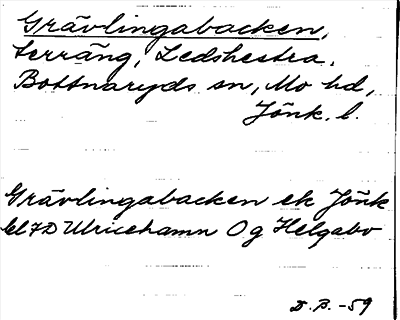 Grävlingabacken,
terräng, Ledshestra,
Bottnaryds sn, Mo hd,
Jönk. l.
Grävlingabacken ek Jönk
bl 7D Ulricehamn Og Helgabo
D.B. -59